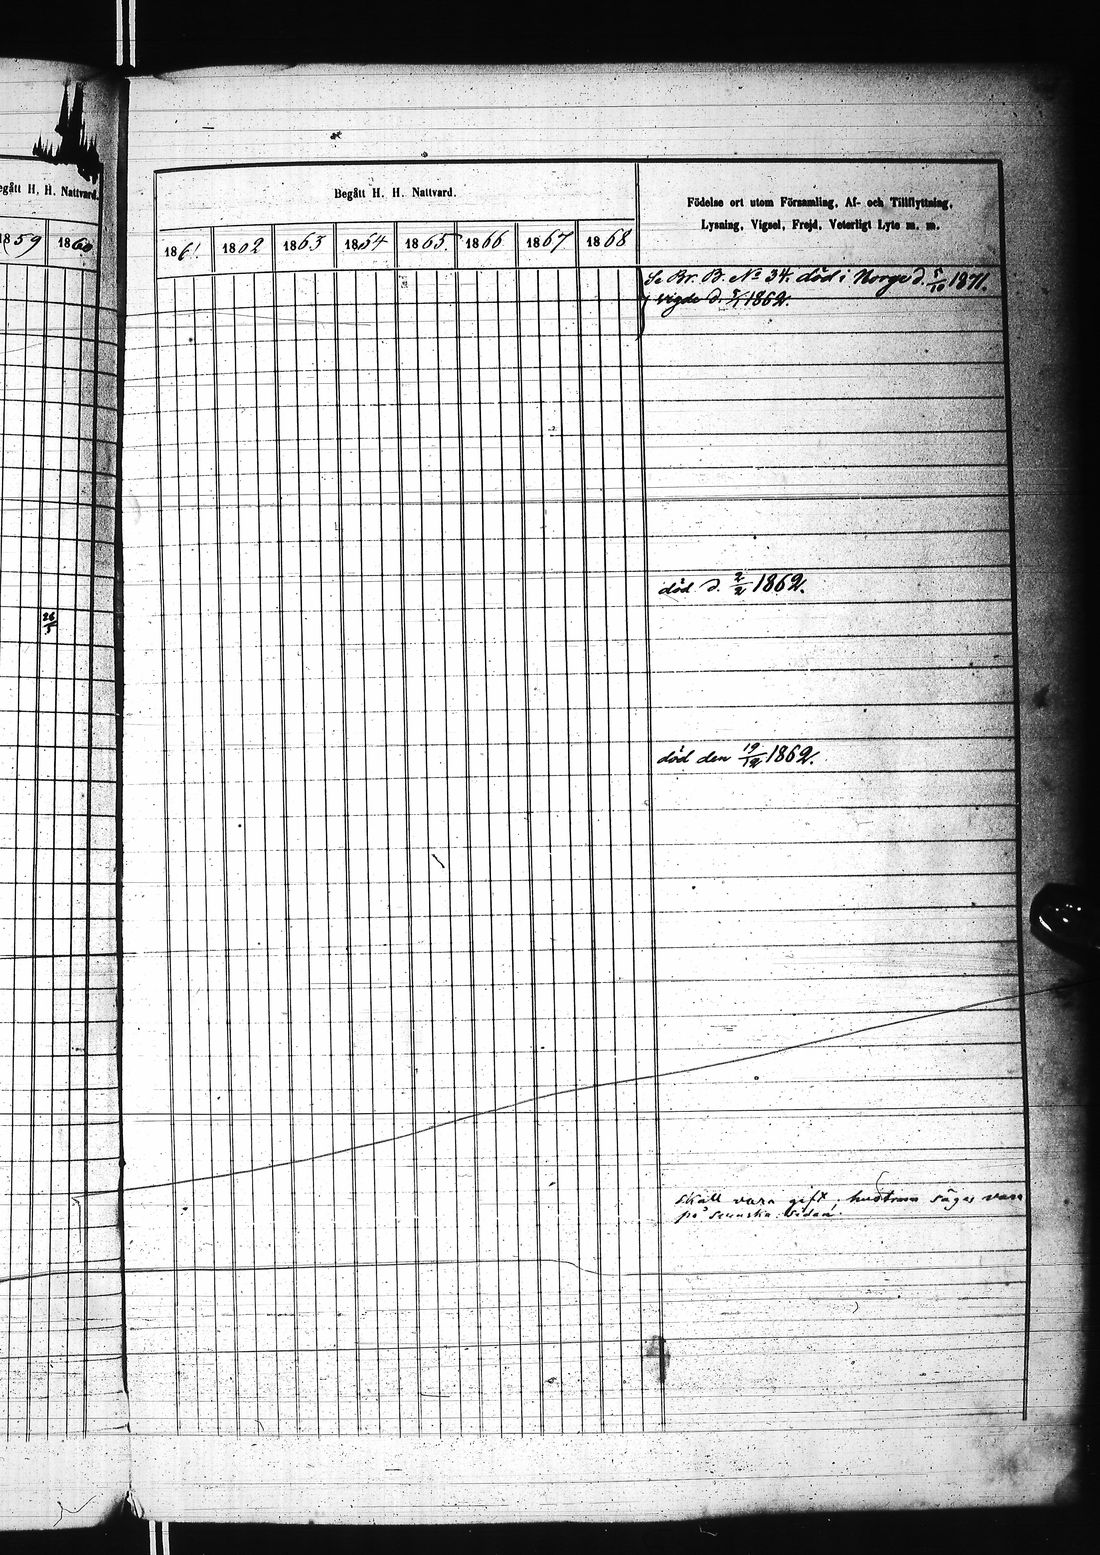 egått H. H. Nattvard.
1859 1860
26/3
Begått H. H. Nattvard.
1861 1862 1863 1864 1865 1866 1867 1868
Födelse ort utom Församling, Af- och Tillflyttning,
Lysning, Vigsel, Frejd, Veterligt Lyte m. m.
Se Br. B. No 34. död i Norge d. 5/10 1871.
vigde d. 1862.
död d. 2/2 1862.
död den 19/12 1862.
skall vara gift. hustrun säges vara
på svenska sidan.